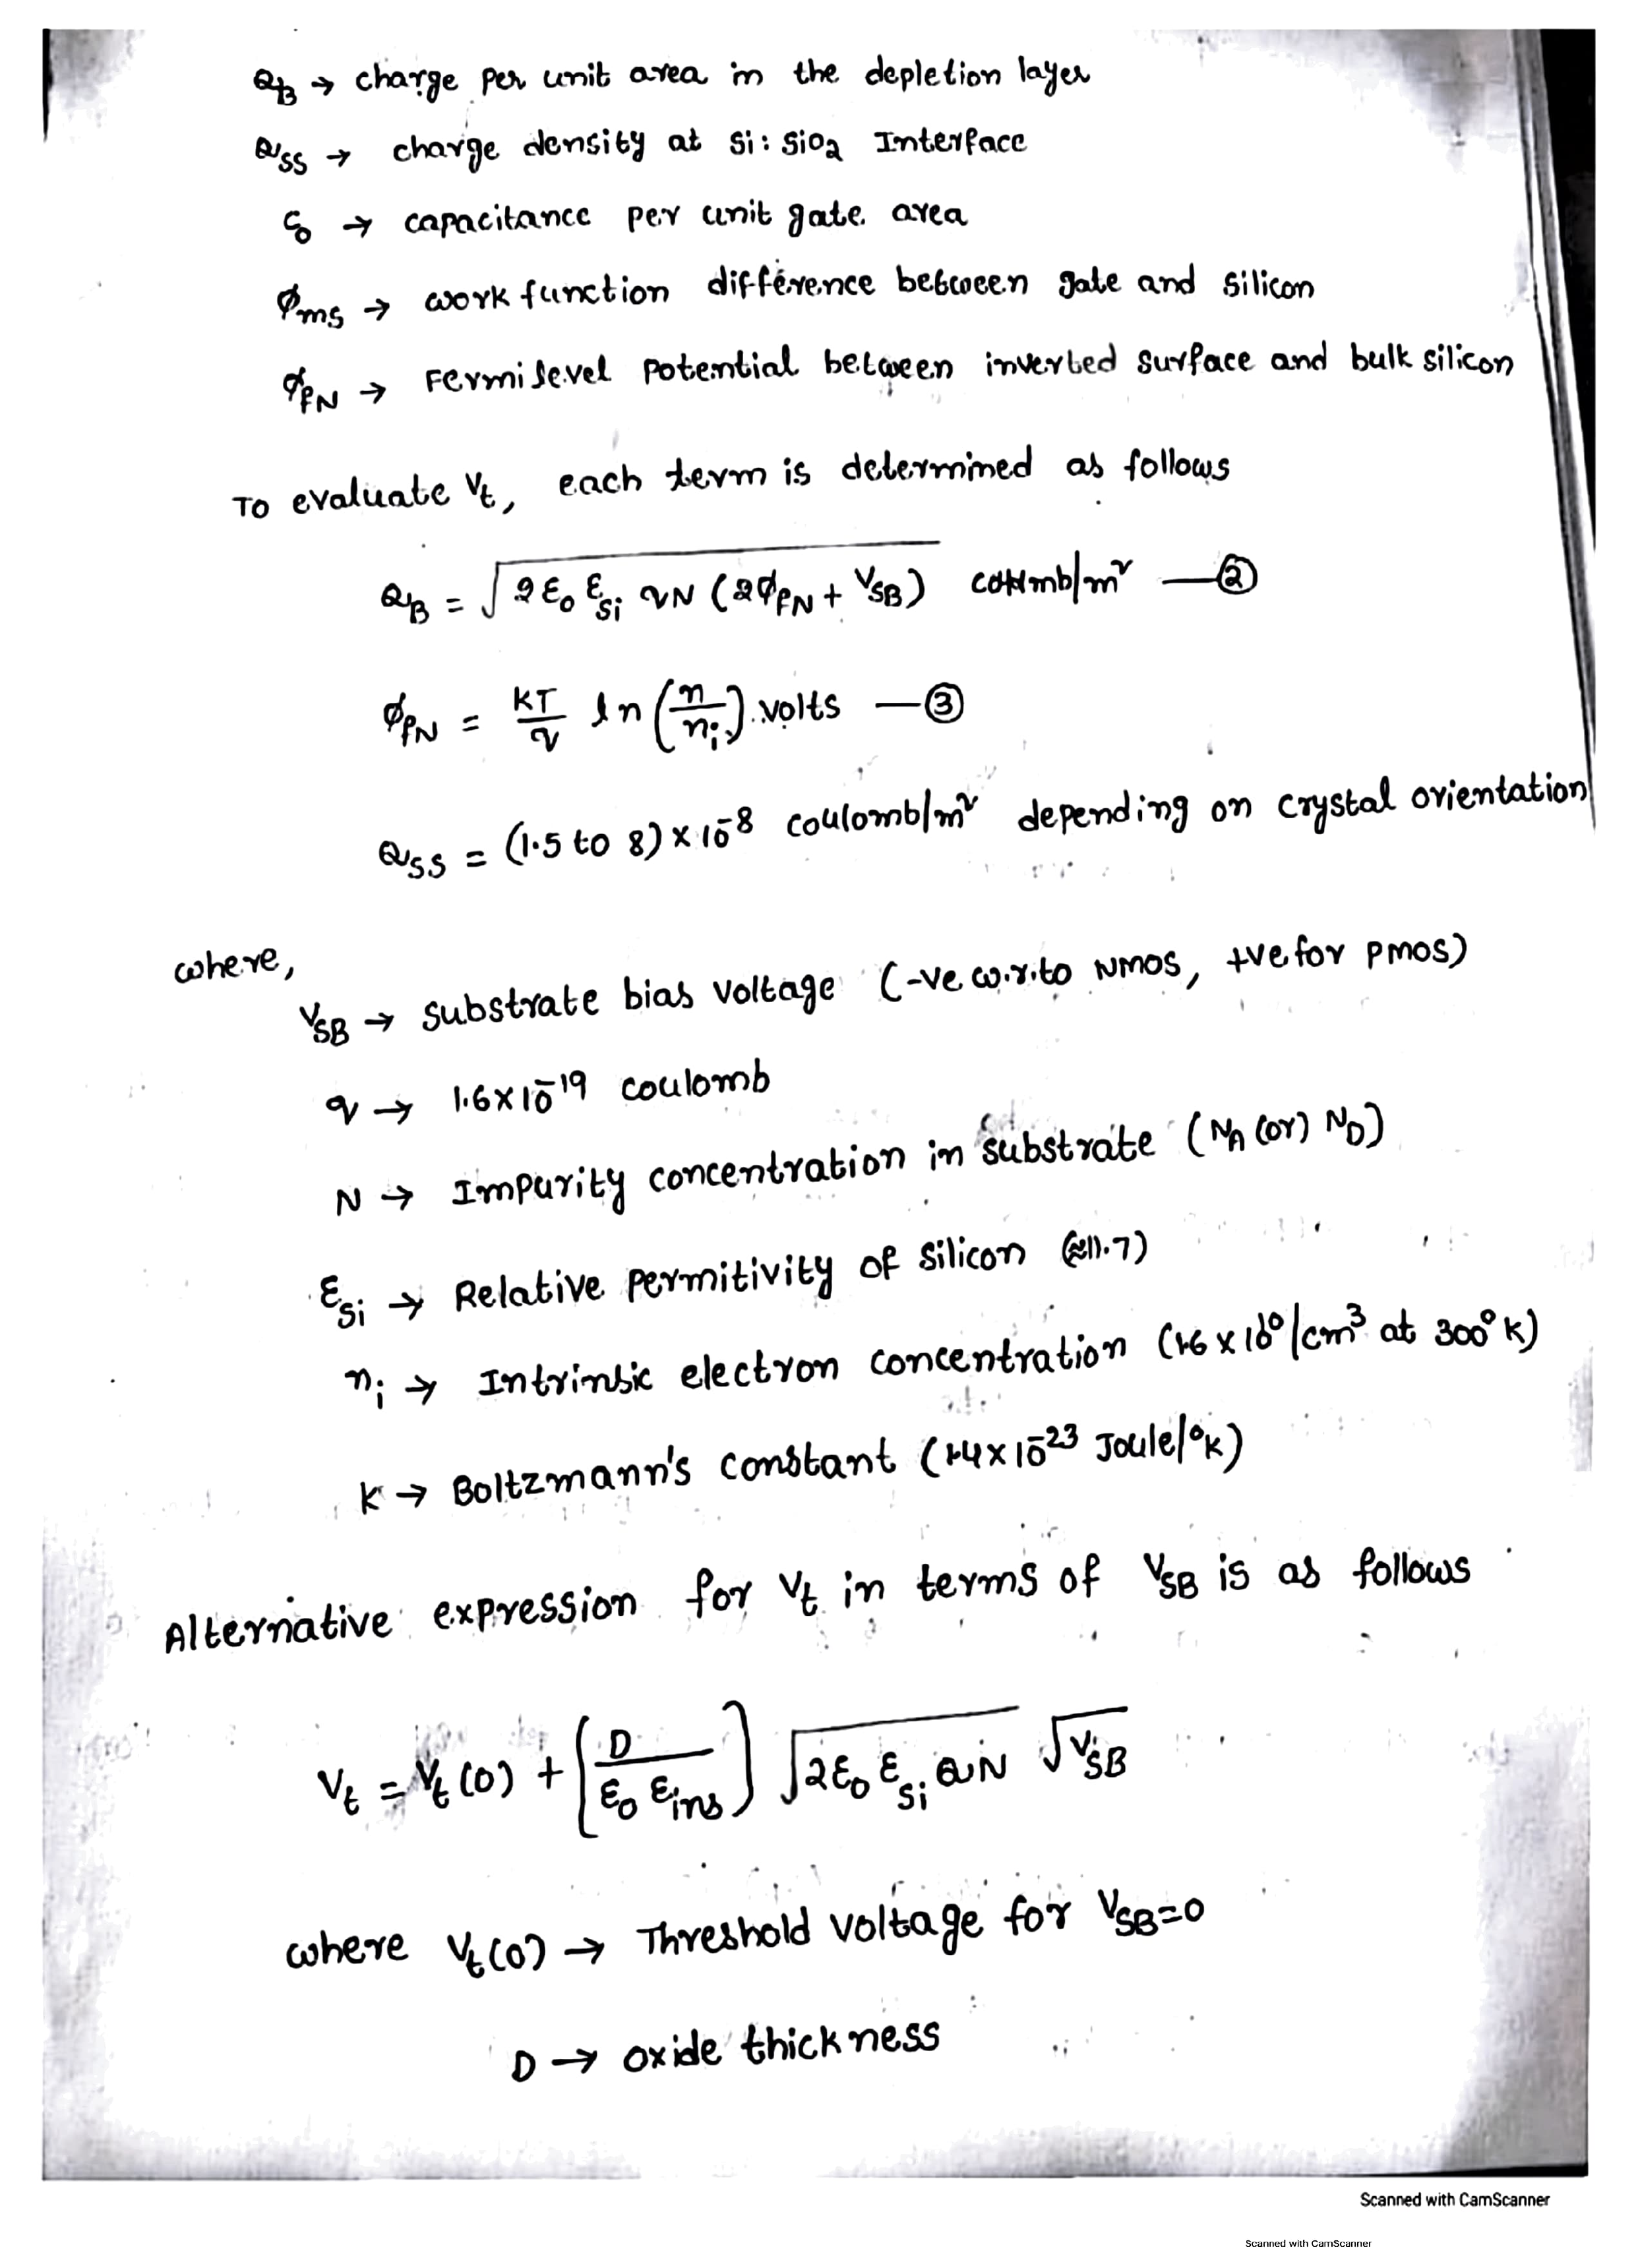 Q_B → charge per unit area in the depletion layer
Q_SS → charge density at Si : SiO2 Interface
C_o → capacitance per unit gate area
Ø_ms → work function difference between gate and silicon
Ø_fN → Fermi level Potential between inverted surface and bulk silicon
To evaluate V_t, each term is determined as follows
Q_B = √(2 ε_o ε_Si qN (2Ø_fN + V_SB)) coulomb/m² —②
Ø_fN = KT/q ln (n/n_i) volts —③
Q_SS = (1.5 to 8) × 10^-8 coulomb/m² depending on crystal orientation
where,
V_SB → substrate bias voltage (-ve w.r.to NMOS, +ve for PMOS)
q → 1.6×10^-19 coulomb
N → Impurity concentration in substrate (N_A (or) N_D)
ε_Si → Relative permitivity of silicon (≈11.7)
n_i → Intrinsic electron concentration (1.6 × 10^10/cm³ at 300°K)
K → Boltzmann's constant (1.4×10^-23 Joule/°K)
Alternative expression for V_t in terms of V_SB is as follows
V_t = V_t(0) + (D/(ε_o ε_ins)) √(2ε_o ε_Si QN) √V_SB
where V_t(0) → Threshold voltage for V_SB=0
D → oxide thickness
Scanned with CamScanner
Scanned with CamScanner